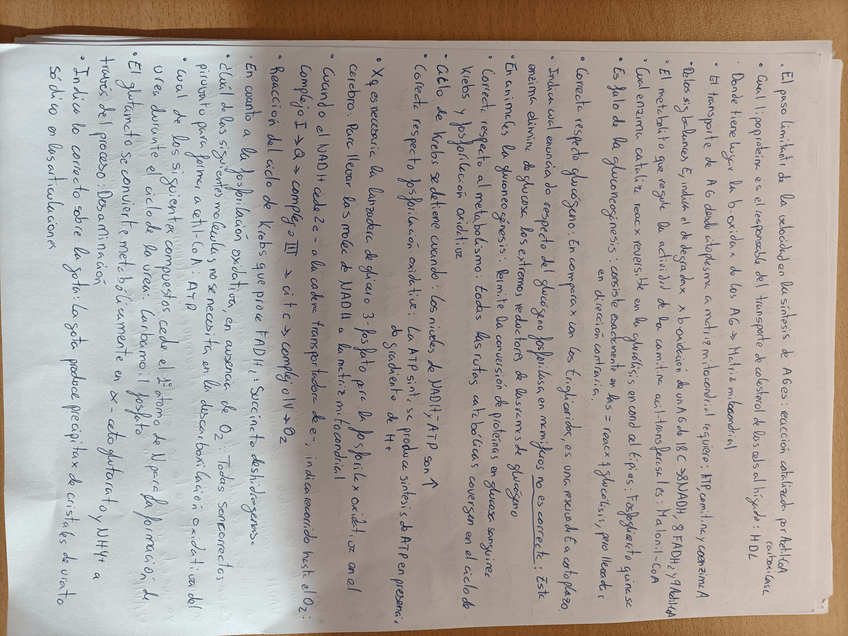 • El paso limitante de la velocidad en la síntesis de AG es: reacción catalizada por AcetilCoA
carboxilasa
• Cual lipoproteína es el responsable del transporte de colesterol de las cels al hígado: HDL
Donde tiene lugar la b-oxidax de los AG → Matriz mitocondrial
• El transporte de AG desde citoplasma a matriz mitocondrial requiere: ATP, carnitina y coenzima A
• De los sig balances E, indica el de degradax x b-oxidación de un AG de 18C → 8NADH, 8 FADH2 y 9 AcetilCoA
• El metabolito que regula la actividad de la carnitina acil-transferasa I es: Malonil-CoA
• Cual enzima cataliza reacx reversible en la glucólisis en cond celtípicas: Fosfoglicerato quinasa
• Es falso de la gluconeogénesis: consiste exactamente en las = reacx q glucolisis, pero llevadas
en dirección contraria.
• Correcta respecto glucógeno: En comparax con los triglicéridos, es una reserva de E a corto plazo
• Indica cual enunciado respecto del glucógeno fosforilasa en mamíferos no es correcta: Este
enzima elimina de glucosa los extremos reductores de las ramas de glucógeno
• En animales, la gluconeogénesis: Permite la conversión de proteínas en glucosa sanguínea
• Correcta respecto al metabolismo: todas las rutas catabólicas covergen en el ciclo de
Krebs y fosforilación oxidativa
• Ciclo de Krebs se detiene cuando: Los niveles de NADH y ATP son ↑
• Correcta respecto fosforilación oxidativa: La ATP sint. se produce síntesis de ATP en presencia
de gradiente de H+
• Xq es necesaria la lanzadera de glicerol 3-fosfato para la fosforilax oxidativa en el
cerebro: Para llevar las molec de NADH a la matriz mitocondrial
• Cuando el NADH cede 2e- a la cadena transportadora de e-, indica recorrido hasta el O2:
Complejo I → Q → complejo III → cit c → complejo IV → O2
• Reacción del ciclo de Krebs que produce FADH2: Succinato deshidrogenasa
• En cuanto a la fosforilación oxidativa, en ausencia de O2: Todas son correctas
• ¿Cuál de las siguientes moléculas no se necesita en la descarboxilación oxidativa del
piruvato para formar acetil-CoA: ATP
• Cual de los siguientes compuestos cede el 1º átomo de N para la formación de
urea durante el ciclo de la urea: Carbamoil fosfato
• El glutamato se convierte metabólicamente en α-cetoglutarato y NH4+ a
través de proceso: Desaminación
• Indica lo correcto sobre la gota: La gota produce precipitax de cristales de urato
sódico en las articulaciones